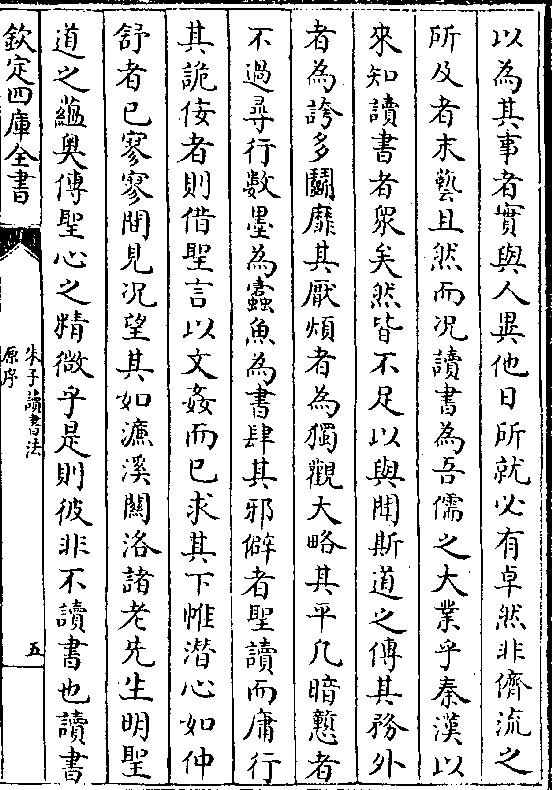 以為其事者實與人異他日所就必有卓然非儕流之
所及者末藝且然而况讀書為吾儒之大業乎秦漢以
來知讀書者衆矣然皆不足以與聞斯道之傳其務外
者為誇多鬬靡其厭煩者為獨觀大略其平凡暗懃者
不過尋行數墨為蠹魚為書肆其邪僻者聖讀而庸行
其詭佞者則借聖言以文姦而已求其下帷潜心如仲
舒者已寥寥間見况望其如濂溪關洛諸老先生明聖
道之蘊奥傳聖心之精微乎是則彼非不讀書也讀書
欽定四庫全書
朱子讀書法
原序
五